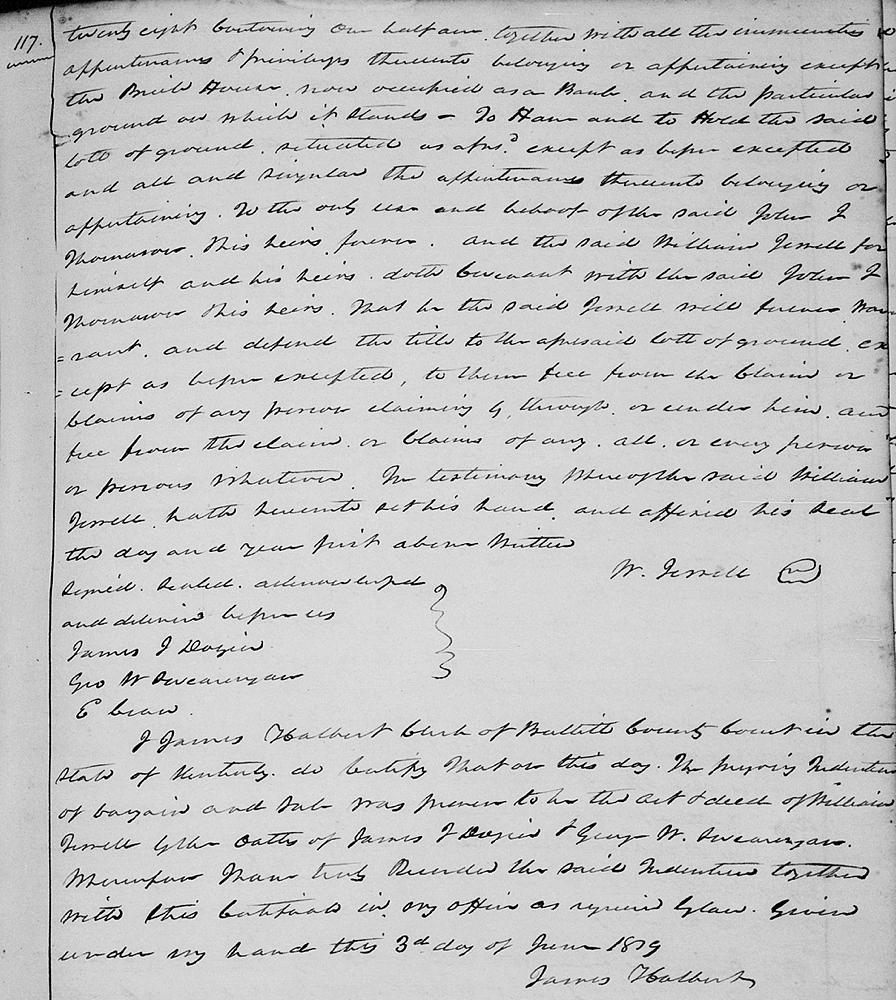 117.
twenty eight Containing One half acre, together with all the immunities
appurtenances & privileges thereunto belonging or appertaining except
the Brick House, now occupied as a Bank, and the particular
ground on which it stands – To Have and to Hold the said
lott of ground, situated as afsd. except as before excepted
and all and singular the appurtenances thereunto belonging or
appertaining. To the only use and behoof of the said John J
Thomasson, & his heirs forever. and the said William Terrell for
himself and his heirs, doth Covenant with the said John J
Thomasson & his heirs. That he the said Terrell will forever War
=rant, and defend the title to the aforesaid lott of ground, ex
=cept as before excepted, to them free from the Claim or
Claims of any person claiming by, through, or under him, and
free from the claim or Claims of any, all, or every person
or persons whatever. In testimony Whereof the said William
Terrell, hath hereunto set his hand, and affixed his seal
the day and year first above Written
W. Terrell
Signed, Sealed, acknowledged
and delivered before us
James J Dozier
Geo W Swearengan
E
I James Halbert Clerk of Bullitt County Court in the
State of Kentucky, do Certify That on this day, The foregoing Indenture
of bargain and Sale was proven to be the act & deed of William
Terrell by the Oaths of James J Dozier & George W. Swearengan.
Whereupon I have truly Recorded the said Indenture together
with this Certificate in my office as required by law. Given
under my hand this 3d day of June 1819
James Halbert